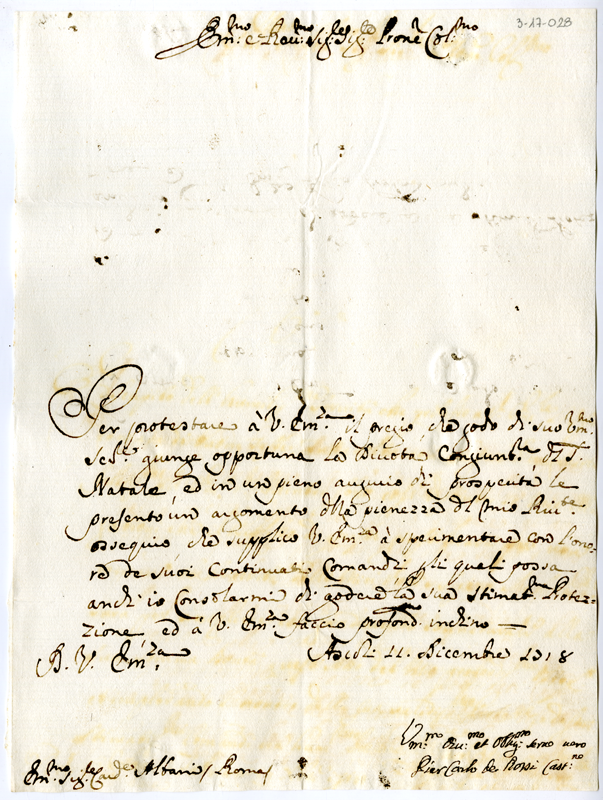 3-17-028
Em:mo e Reu:mo Sig:re Sig:re Prone Col:mo
Per protestare à V. Em:za il pregio che godo di suo Um:mo
Ser:re giunge opportuna la Divota Congiunt:ra del S.
Natale, ed in un pieno augurio di prosperità le
presento un argomento della pienezza del mio Riu:te
ossequio che supplico V. Em:za à sperimentare con l'ono-
re de suoi Continuati Comandi per li quali possa
anch'io Consolarmi di godere la sua Stimat:ma Protez-
zione ed à V. Em:za faccio profond:mo inchino =
D. V. Em:za Ascoli 11. Dicembre 1718
Um:mo Diu:mo et Oblig:mo Seruo uero
Pier Carlo de Rossi Cast:no
Em:mo Sig:re Card:e Albani / Roma /